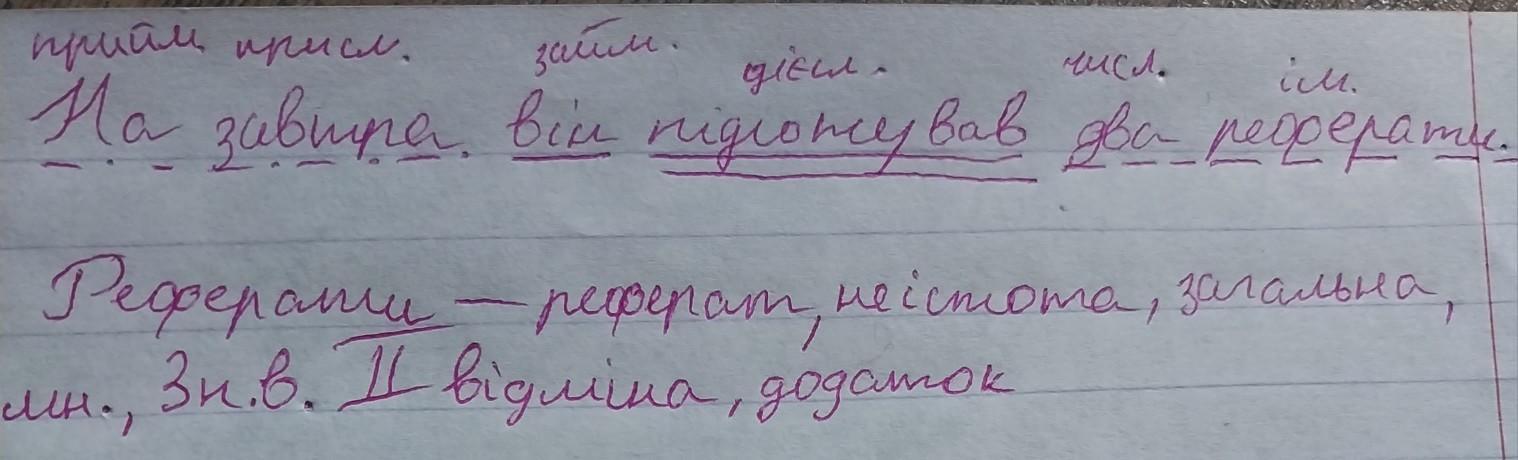 прийм. присл. займ. дієсл. числ. ім.
На завтра він підготував два реферати.
Реферати — реферат, неістота, загальна,
мн., Зн.в. II відміна, додаток